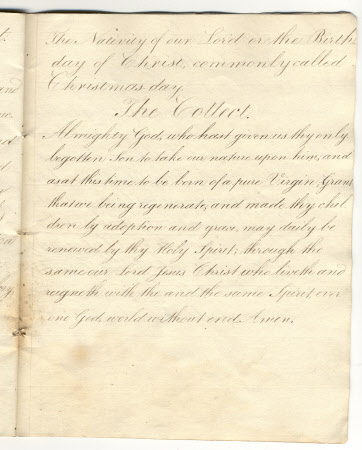 The Nativity of our Lord or the Birth
day of Christ, commonly called
Christmas day
The Collect.
Almighty God, who hast given us thy only
begotten Son to take our nature upon him, and
as at this time to be born of a pure Virgin; Grant
that we being regenerate, and made thy chil
dren by adoption and grace, may daily be
renewed by thy Holy Spirit; through the
same our Lord Jesus Christ who liveth and
reigneth with the and the same Spirit, ever
one God, world without end. Amen.